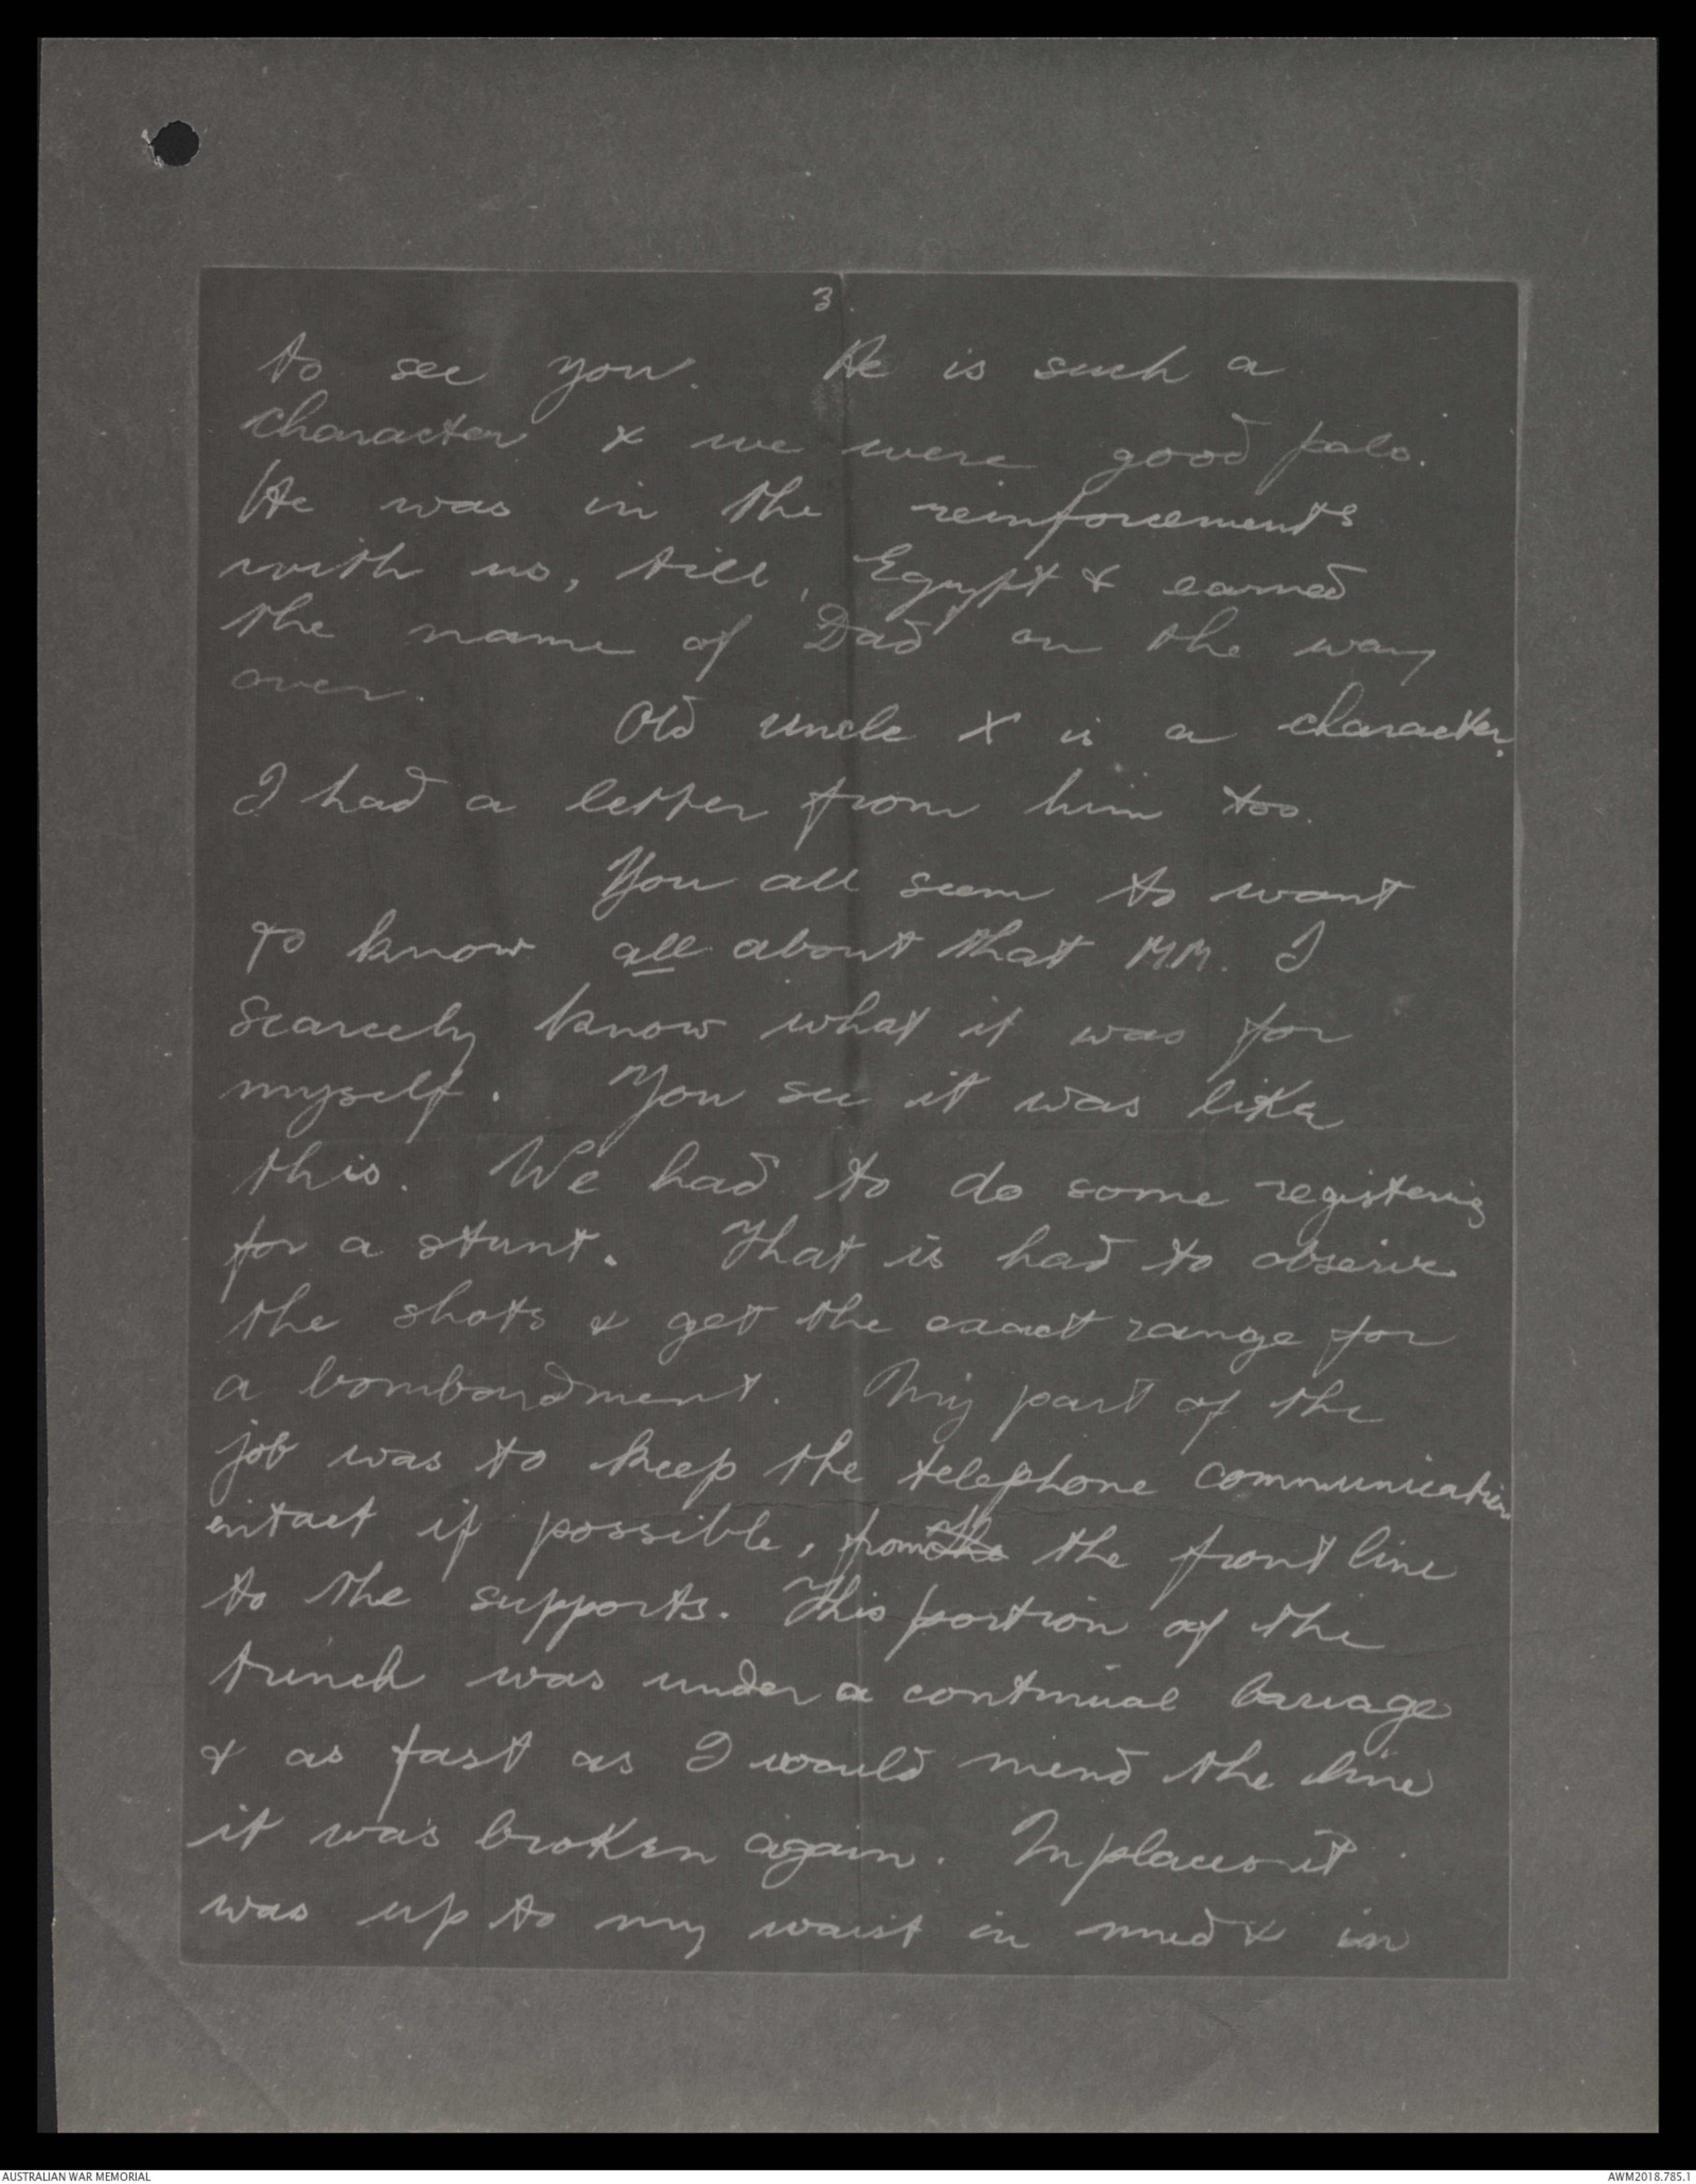 3.
to see you. He is such a
character & we were good pals.
He was in the reinforcements
with us, till, Egypt & earned
the name of Dad on the way
over.
Old uncle X is a character.
I had a letter from him too.
You all seem to want
to know all about that M.M. I
scarcely know what it was for
myself. You see it was like
this. We had to do some registering
for a stunt. That is had to observe
the shots & get the exact range for
a bombardment. My part of the
job was to keep the telephone communication
intact if possible, from the the front line
to the supports. This portion of the
trench was under a continual barrage
& as fast as I would mend the line
it was broken again. In places it
was up to my waist in mud & in
AUSTRALIAN WAR MEMORIAL
AWM2018.785.1